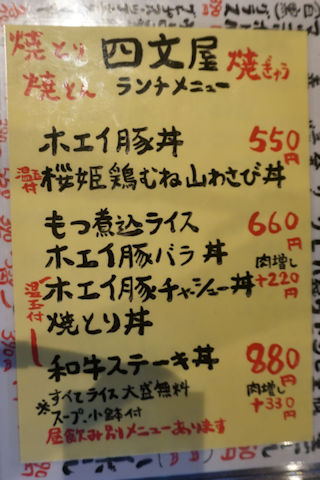 焼とり 四文屋 焼ぎゅう
焼とん ランチメニュー
ホエイ豚丼 550円
温玉付 桜姫鶏むね山わさび丼
もつ煮込ライス 660円
ホエイ豚バラ丼 肉増し
温玉付 ホエイ豚チャーシュー丼 +220円
焼とり丼
和牛ステーキ丼 880円
※すべてライス大盛無料 肉増し
スープ、小鉢付 +330円
昼飲み別メニューあります